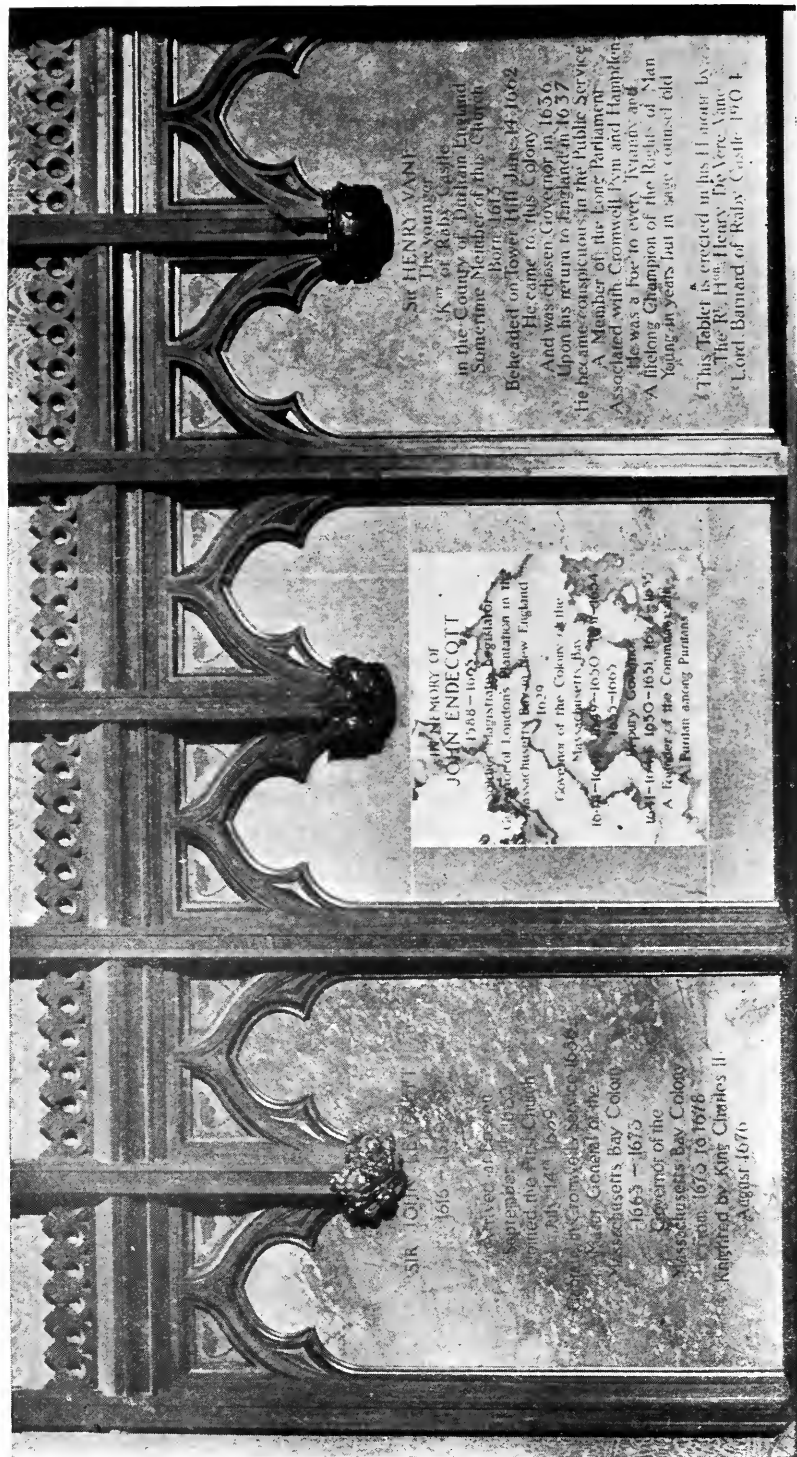 SIR JOHN
1616 –
September
the First Church
July 14th 1639
Cromwell's Service
Major General of the
Massachusetts Bay Colony
1663 – 1673
Governor of the
Massachusetts Bay Colony
From 1673 to 1678
Knighted by King Charles II
August 1676
IN MEMORY OF
JOHN ENDECOTT
1588 – 1665
Magistrate Legislator
Governor of Londons Plantation in the
Massachusetts Bay in New England
1629
Governor of the Colony of the
Massachusetts Bay
1649–1650
1655–1665
Deputy Governor
1650–1651
A Founder of the Commonwealth
A Puritan among Puritans
Sir HENRY VANE
The younger
Knt of Raby Castle
in the County of Durham England
Sometime Member of this Church
Born 1613
Beheaded on Tower Hill June 14 1662
He came to this Colony
And was chosen Governor in 1636
Upon his return to England in 1637
He became conspicuous in the Public Service
A Member of the Long Parliament
Associated with Cromwell Pym and Hampden
He was a Foe to every Tyranny and
A lifelong Champion of the Rights of Man
Young in years but in sage counsel old
This Tablet is erected in his Honour by
The Rt Hon Henry De Vere Vane
Lord Barnard of Raby Castle